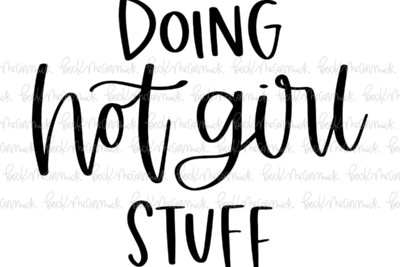 DOING
hot girl
STUFF